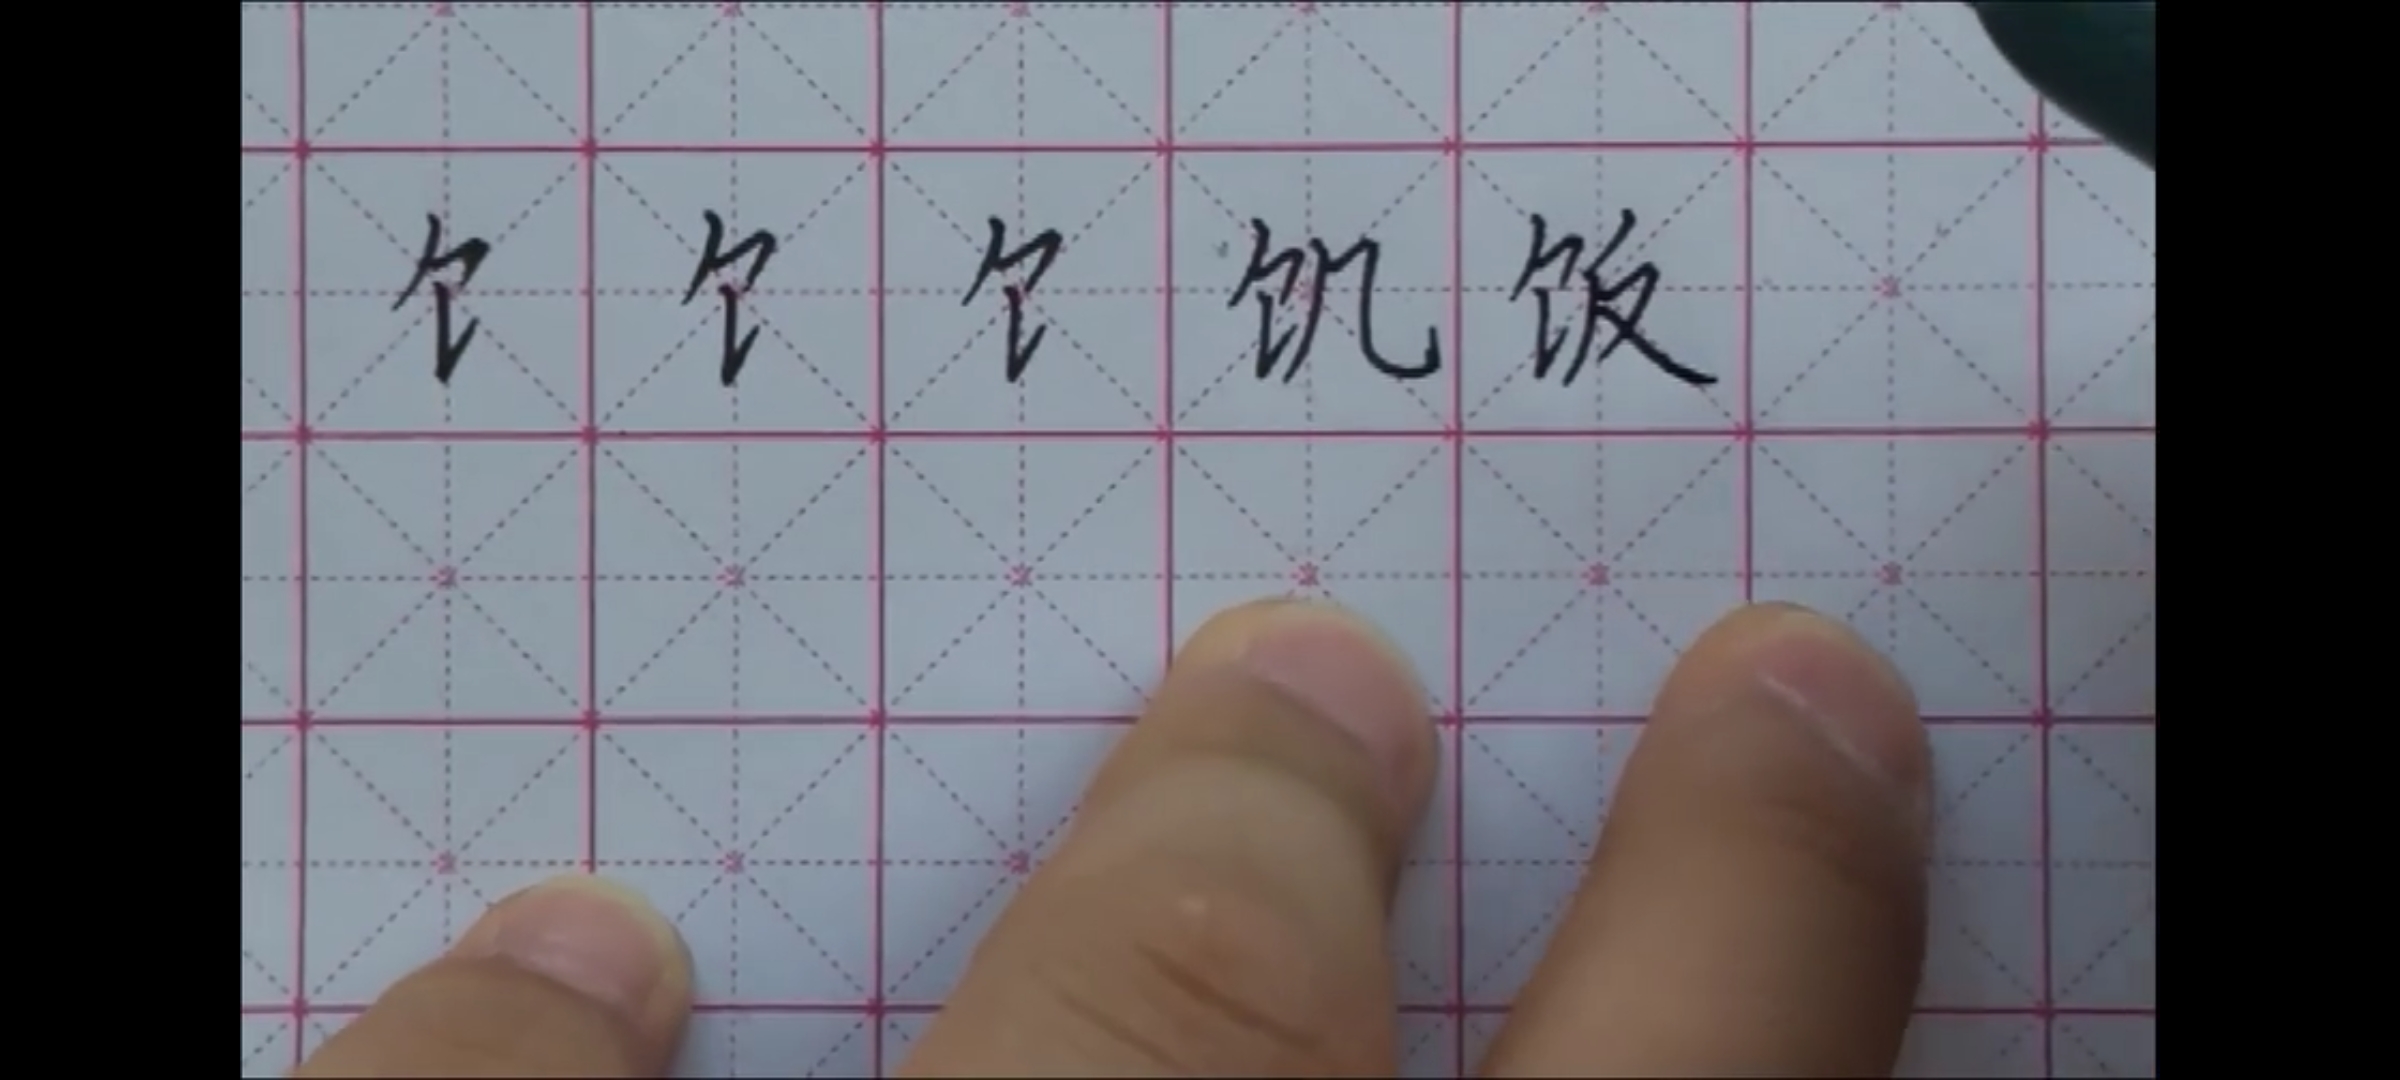 饣饣饣饥饭